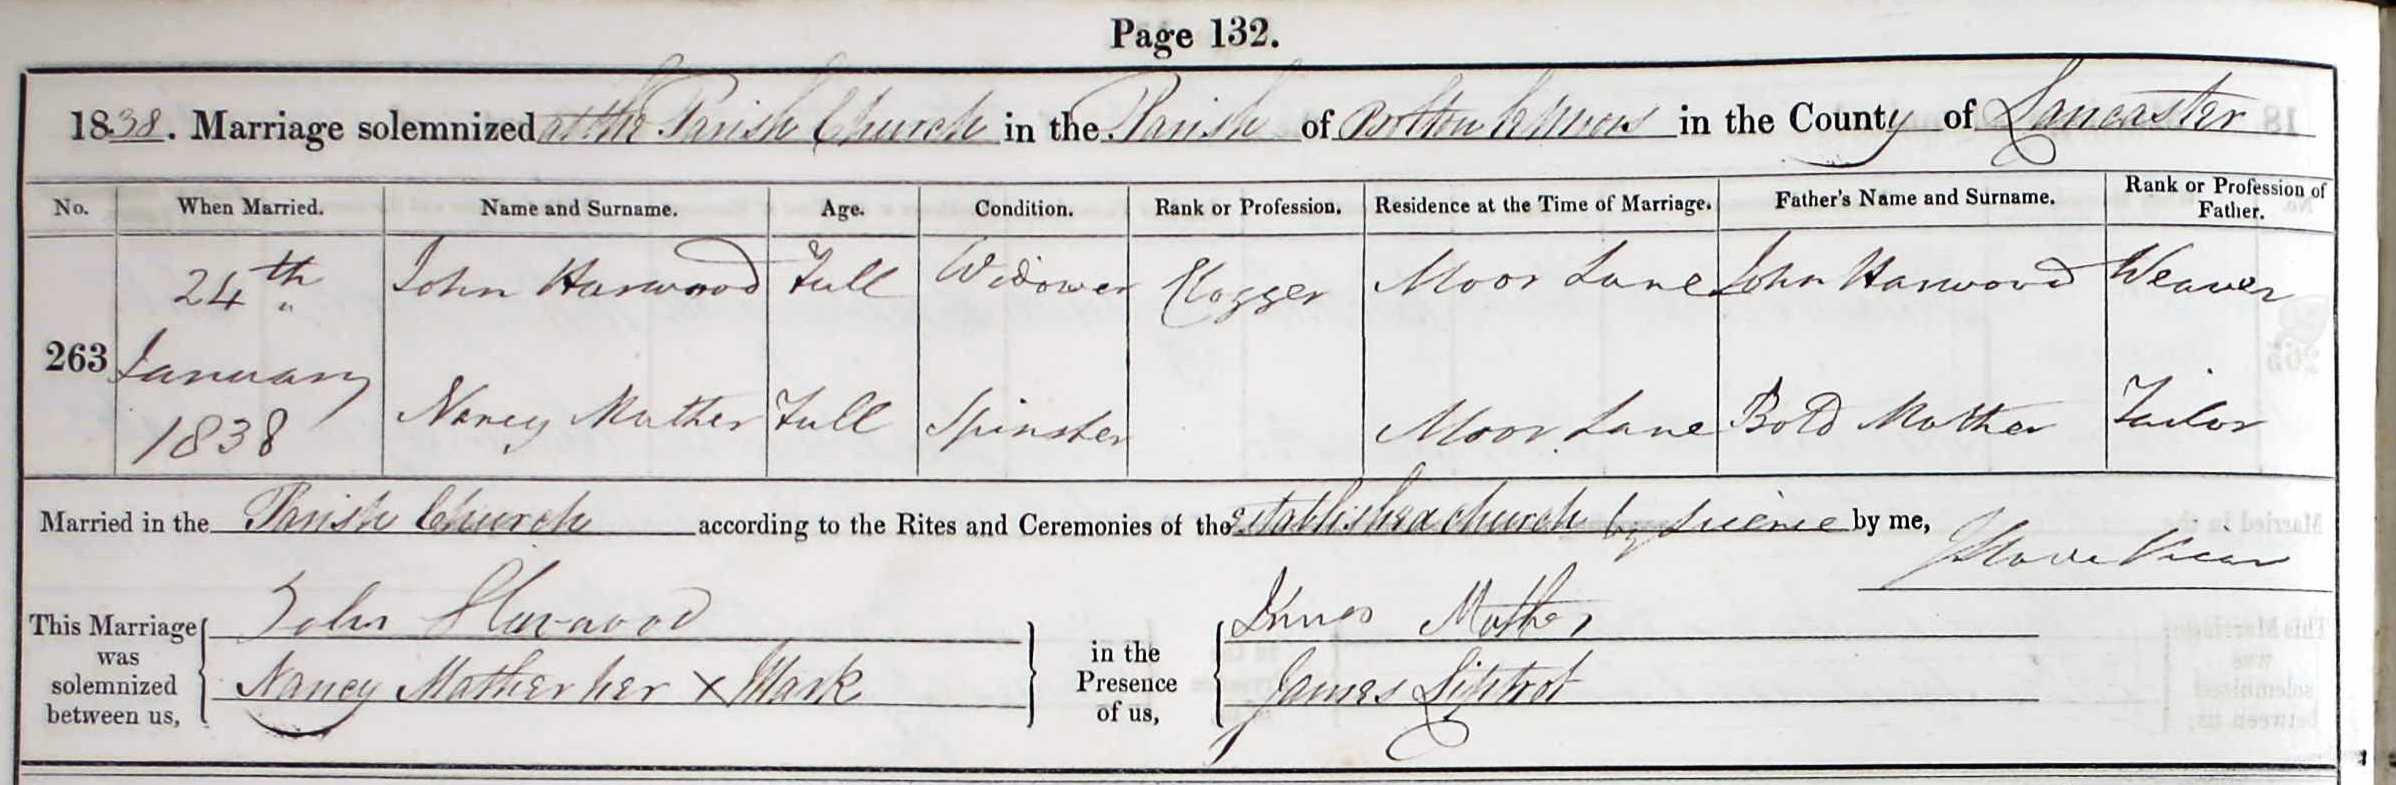 Page 132.
1838. Marriage solemnized at the Parish Church in the Parish of Bolton le Moors in the County of Lancaster
No. When Married. Name and Surname. Age. Condition. Rank or Profession. Residence at the Time of Marriage. Father's Name and Surname. Rank or Profession of Father.
24th John Harwood Full Widower Clogger Moor Lane John Harwood Weaver
263 January
1838 Nancy Mather Full Spinster Moor Lane Bold Mather Tailor
Married in the Parish Church according to the Rites and Ceremonies of the Established Church by Licence by me, Slade Vicar
This Marriage was solemnized between us, John Harwood
Nancy Mather her X Mark
in the Presence of us, Mather
James Liptrot